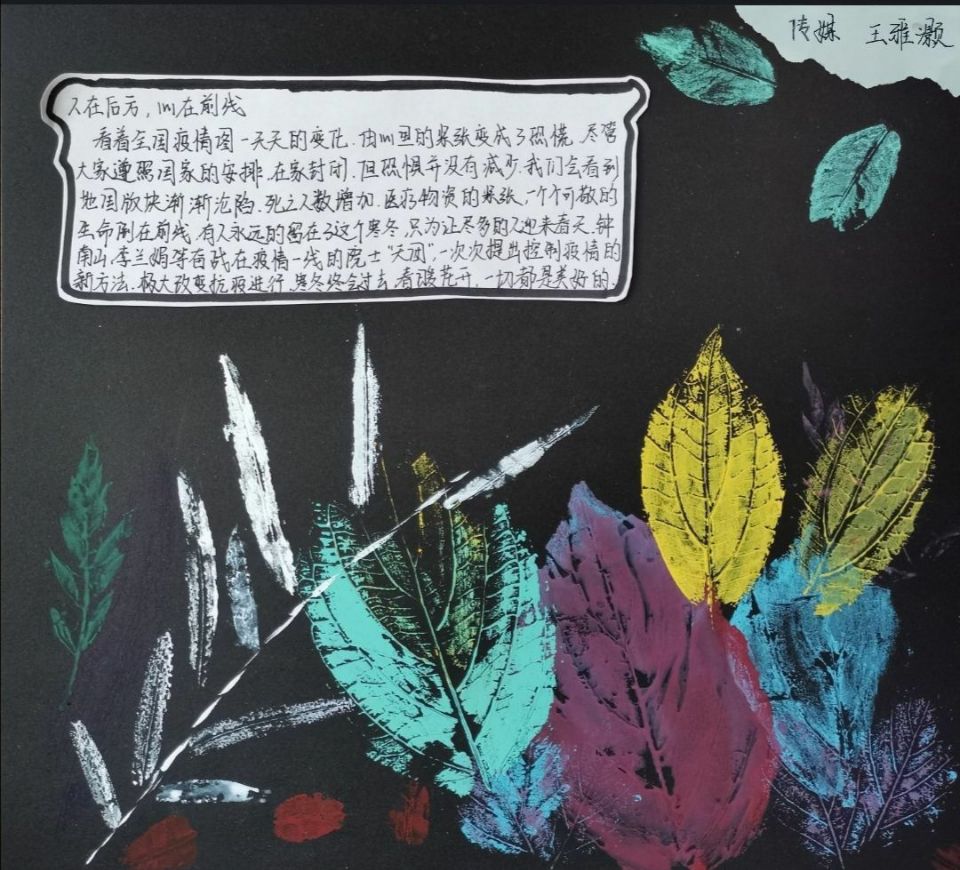 人在后方，心在前线
看着全国疫情图一天天的变化，由心里的紧张变成了恐慌，尽管
大家遵照国家的安排，在家封闭，但恐惧并没有减少，我们会看到
地图版块渐渐沦陷，死亡人数增加，医疗物资的紧张，一个个可敬的
生命倒在前线，有人永远的留在了这个寒冬，只为让尽多的人迎来春天，钟
南山，李兰娟等奋战在疫情一线的院士“天团”，一次次提出控制疫情的
新方法，极大改变抗疫进行，寒冬终会过去，春暖花开，一切都是美好的.
传媒 王雅灏